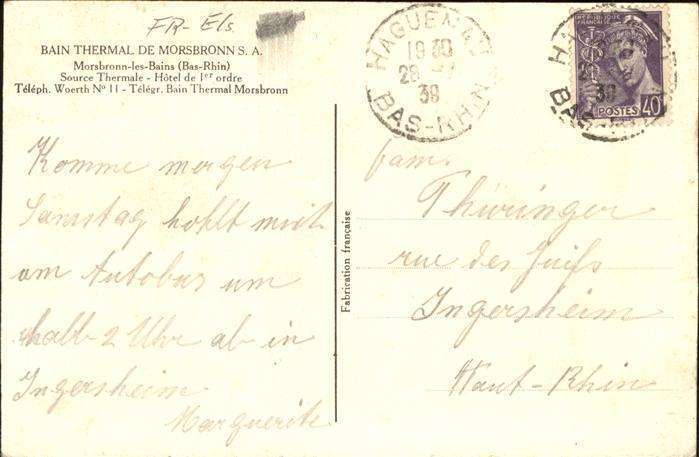 FR-Els.
BAIN THERMAL DE MORSBRONN S. A.
Morsbronn-les-Bains (Bas-Rhin)
Source Thermale - Hôtel de 1er ordre
Téléph. Woerth No 11 - Télégr. Bain Thermal Morsbronn
Komme morgen
Samstag hohlt mich
am Autobus um
halb 2 Uhr ab in
Ingersheim
Marguerite
Fabrication française
HAGUENAU
19 30
28
39
BAS-RHIN
RÉPUBLIQUE FRANÇAISE
POSTES 40
HA
39
BAS-
fam.
Thüringer
rue des Juifs
Ingersheim
Haut-Rhin